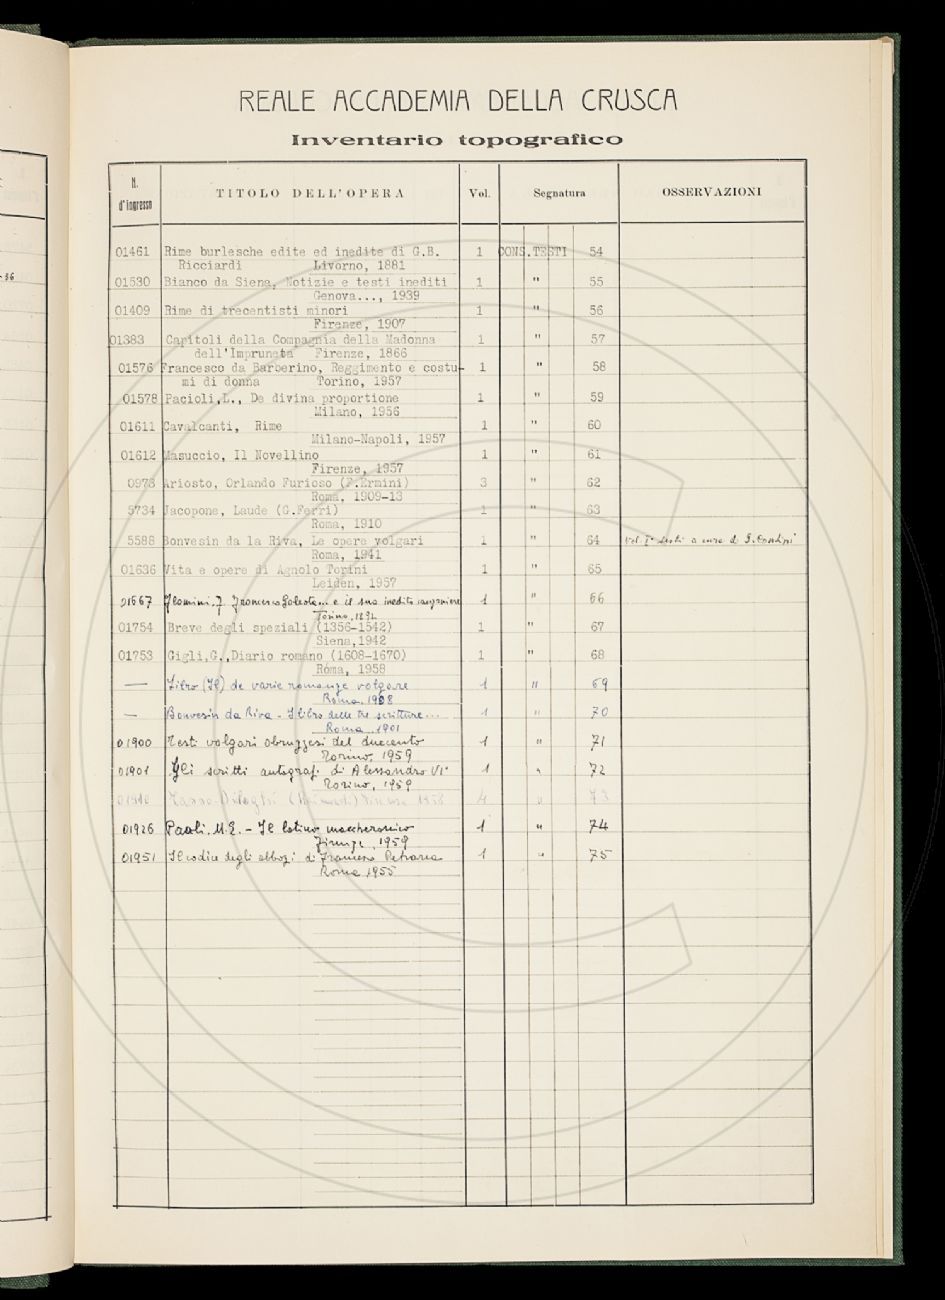 REALE ACCADEMIA DELLA CRUSCA
Inventario topografico
N. d'ingresso TITOLO DELL'OPERA Vol. Segnatura OSSERVAZIONI
01461 Rime burlesche edite ed inedite di G.B. 1 CONS.TESTI 54
Ricciardi Livorno, 1881
01530 Bianco da Siena, Notizie e testi inediti 1 " 55
Genova..., 1939
01409 Rime di trecentisti minori 1 " 56
Firenze, 1907
01383 Capitoli della Compagnia della Madonna 1 " 57
dell'Impruneta Firenze, 1866
01576 Francesco da Barberino, Reggimento e costu- 1 " 58
mi di donna Torino, 1957
01578 Pacioli,L., De divina proportione 1 " 59
Milano, 1956
01611 Cavalcanti, Rime 1 " 60
Milano-Napoli, 1957
01612 Masuccio, Il Novellino 1 " 61
Firenze, 1957
0973 Ariosto, Orlando Furioso (F.Ermini) 3 " 62
Roma, 1909-13
5734 Jacopone, Laude (G.Ferri) 1 " 63
Roma, 1910
5588 Bonvesin da la Riva, Le opere volgari 1 " 64 Vol. I° Testi a cura di G. Contini
Roma, 1941
01636 Vita e opere di Agnolo Torini 1 " 65
Leiden, 1957
01667 Flamini, F. Francesco Galeota... e il suo inedito canzoniere 1 " 66
Torino, 1892
01754 Breve degli speziali (1356-1542) 1 " 67
Siena,1942
01753 Gigli,G.,Diario romano (1608-1670) 1 " 68
Roma, 1958
— Libro (Il) de varie romanze volgare 1 " 69
Roma, 1908
— Bonvesin da Riva - Il libro delle tre scritture... 1 " 70
Roma, 1901
01900 Testi volgari abruzzesi del duecento 1 " 71
Torino, 1959
01901 Gli scritti autograf. di Alessandro VI° 1 " 72
Torino, 1959
Tasso - Dialoghi Firenze 1958 4 " 73
01926 Paoli, M.E. - Il latino maccheronico 1 " 74
Firenze, 1959
01951 Il codice degli abbozzi di Francesco Petrarca 1 " 75
Roma 1955